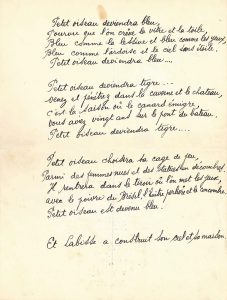 Petit oiseau deviendra bleu,
Pourvu que l'on crève la vitre et la toile,
Bleu comme le bleu et bleu comme les yeux,
Bleu comme l'ardoise et le ciel sans étoile.
Petit oiseau deviendra bleu....
Petit oiseau deviendra tigre....
Venez et pénétrez dans la caverne et le château,
c'est la saison où le canard émigre,
vous avez vingt ans sur le pont du bateau.
Petit oiseau deviendra tigre....
Petit oiseau choisira sa cage de feu,
Parmi des femmes nues et des statues en décombres.
Il rentrera dans le tiroir où l'on met les jeux,
avec le poivre du Brésil, l'huître perlière et le concombre.
Petit oiseau est devenu bleu.
Et Labisse a construit son ciel et sa maison.